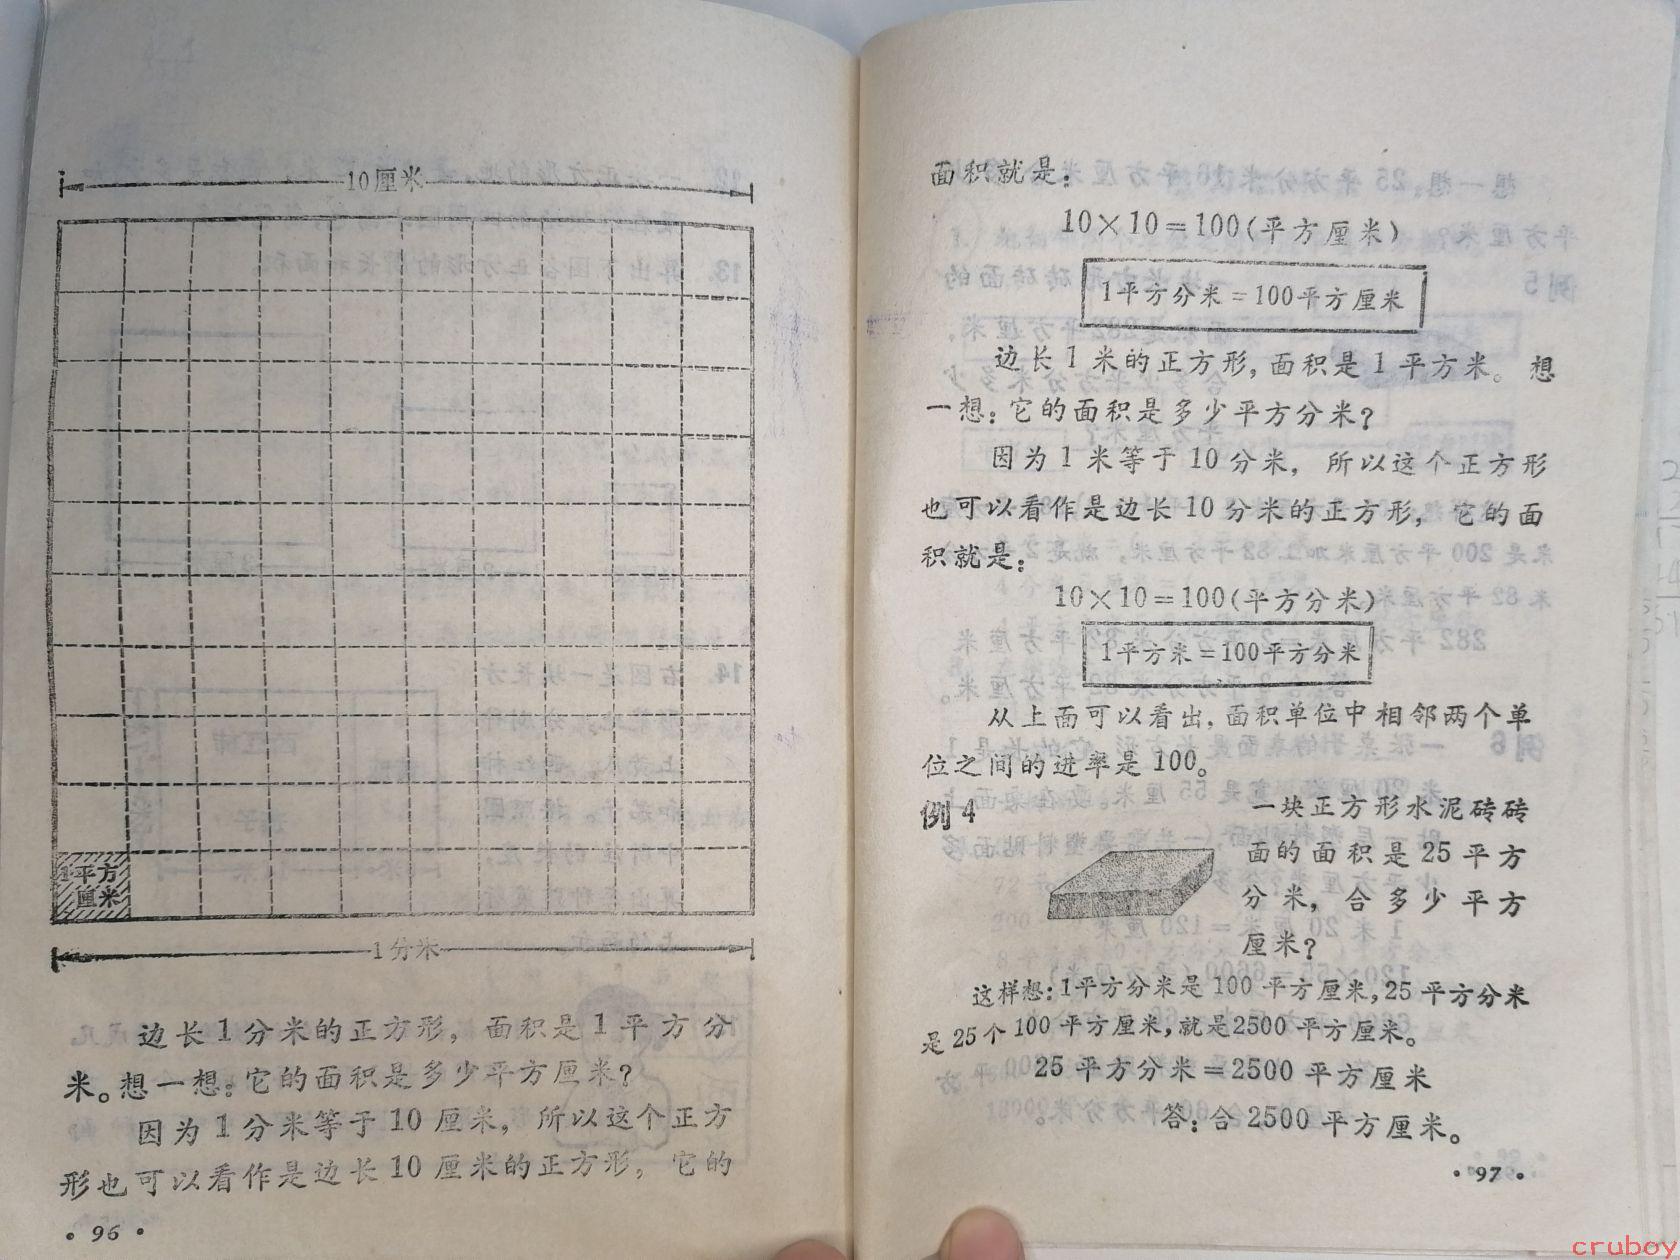 10厘米
1平方
厘米
1分米
边长1分米的正方形，面积是1平方分
米。想一想：它的面积是多少平方厘米？
因为1分米等于10厘米，所以这个正方
形也可以看作是边长10厘米的正方形，它的
·96·
面积就是：
10×10=100(平方厘米)
1平方分米=100平方厘米
边长1米的正方形，面积是1平方米。想
一想：它的面积是多少平方分米？
因为1米等于10分米，所以这个正方形
也可以看作是边长10分米的正方形，它的面
积就是：
10×10=100(平方分米)
1平方米=100平方分米
从上面可以看出，面积单位中相邻两个单
位之间的进率是100。
例4 一块正方形水泥砖砖
面的面积是25平方
分米，合多少平方
厘米？
这样想：1平方分米是100平方厘米，25平方分米
是25个100平方厘米，就是2500平方厘米。
25平方分米=2500平方厘米
答：合2500平方厘米。
·97·
cruboy